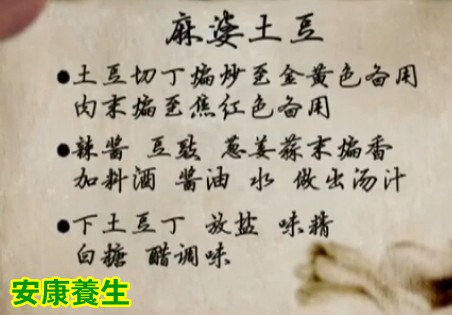 麻婆土豆
●土豆切丁煸炒至金黄色备用
肉末煸至焦红色备用
●辣酱 豆豉 葱姜蒜末煸香
加料酒 酱油 水 做出汤汁
●下土豆丁 放盐 味精
白糖 醋调味
安康養生